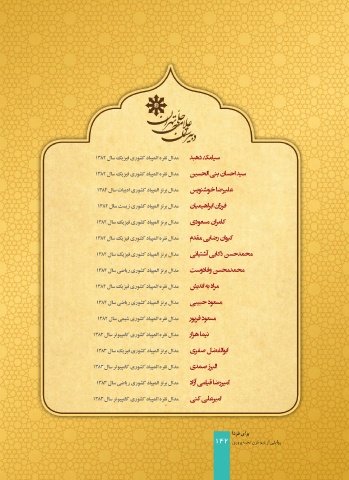 دبیرستان علامه حلی تهران
سیامک دهبد مدال نقره المپیاد کشوری فیزیک، سال ۱۳۸۲
سید احسان بنی الحسین مدال نقره المپیاد کشوری فیزیک، سال ۱۳۸۲
علیرضا خوشنویس مدال برنز المپیاد کشوری ادبیات، سال ۱۳۸۲
فوژان ابراهیمیان مدال برنز المپیاد کشوری زیست، سال ۱۳۸۲
کامران مسعودی مدال نقره المپیاد کشوری فیزیک، سال ۱۳۸۲
کیوان رضایی مقدم مدال نقره المپیاد کشوری فیزیک، سال ۱۳۸۲
محمدحسن ذکایی آشتیانی مدال برنز المپیاد کشوری فیزیک، سال ۱۳۸۲
محمدمحسن وفادوست مدال نقره المپیاد کشوری ریاضی، سال ۱۳۸۲
مراد به اندیش مدال برنز المپیاد کشوری فیزیک، سال ۱۳۸۲
مسعود حبیبی مدال برنز المپیاد کشوری ریاضی، سال ۱۳۸۲
مسعود فرپور مدال نقره المپیاد کشوری شیمی، سال ۱۳۸۲
نیما هراز مدال نقره المپیاد کشوری کامپیوتر، سال ۱۳۸۲
ابوالفضل صفری مدال برنز المپیاد کشوری فیزیک، سال ۱۳۸۳
البرز صمدی مدال نقره المپیاد کشوری کامپیوتر، سال ۱۳۸۳
امیررضا قیامی آزاد مدال برنز المپیاد کشوری ریاضی، سال ۱۳۸۳
امیرعلی کنی مدال برنز المپیاد کشوری کامپیوتر، سال ۱۳۸۳
برای فردا
۱۴۲